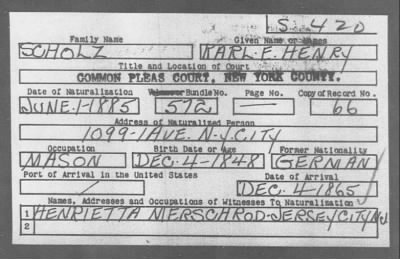 S-420
Family Name Given Name or Names
SCHOLZ KARL. E. HENRY
Title and Location of Court
COMMON PLEAS COURT, NEW YORK COUNTY.
Date of Naturalization Volume or Bundle No. Page No. Copy of Record No.
JUNE-1-1885 572 — 66
Address of Naturalized Person
1099-1 AVE. N.Y. CITY
Occupation Birth Date or Age Former Nationality
MASON DEC-4-1848 GERMAN
Port of Arrival in the United States Date of Arrival
/ DEC-4-1865
Names, Addresses and Occupations of Witnesses To Naturalization
1 HENRIETTA MERSCHROD-JERSEY CITY N.J.
2